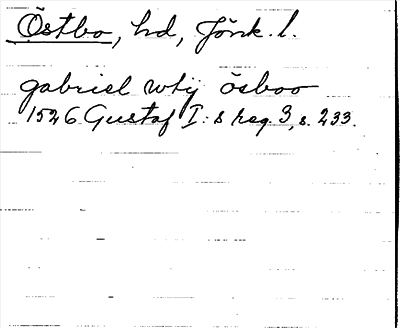 Östbo, hd, Jönk. l.
gabriel wtij ösboo
1526 Gustaf I:s reg. 3, s. 233.